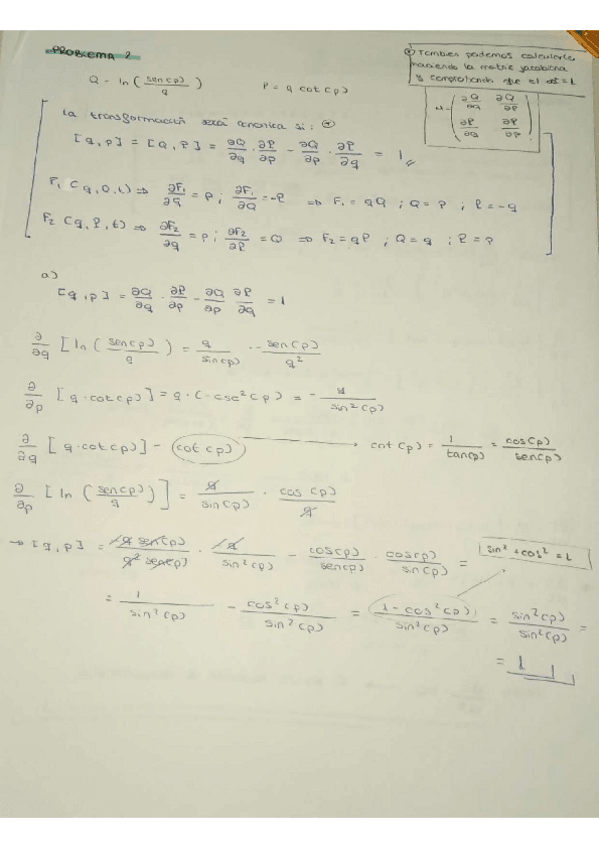 PROBLEMA 2
⊛ Tambien podemos calcularlo
haciendo la matriz jacobiana
y comprobando que el det = 1
Q = ln ( sen(p) / q )    P = q cot(p)
∂Q/∂q  ∂Q/∂p
∂P/∂q  ∂P/∂p
La transformación será canonica si: ⊛
[q,p] = [Q,P] = ∂Q/∂q · ∂P/∂p - ∂Q/∂p · ∂P/∂q = 1
F₁ (q,Q,t) ⇒ ∂F₁/∂q = p ; ∂F₁/∂Q = -P ⇒ F₁ = qQ ; Q = p ; P = -q
F₂ (q,P,t) ⇒ ∂F₂/∂q = p ; ∂F₂/∂P = Q ⇒ F₂ = qP ; Q = q ; P = p
a)
[q,p] = ∂Q/∂q · ∂P/∂p - ∂Q/∂p ∂P/∂q = 1
∂/∂q [ ln ( sen(p) / q ) = q / sin(p) · - sen(p) / q²
∂/∂p [ q · cot(p) ] = q · (-csc²(p) = - q / sin²(p)
∂/∂q [ q · cot(p) ] = cot(p) → cot(p) = 1 / tan(p) = cos(p) / sen(p)
∂/∂p [ ln ( sen(p) / q ) ] = q / sin(p) · cos(p) / q
→ [q,p] = -q sen(p) / q² sen(p) · -q / sin²(p) - cos(p) / sen(p) · cos(p) / sin(p) =
sin² + cos² = 1
= 1 / sin²(p) - cos²(p) / sin²(p) = 1 - cos²(p) / sin²(p) = sin²(p) / sin²(p) =
= 1